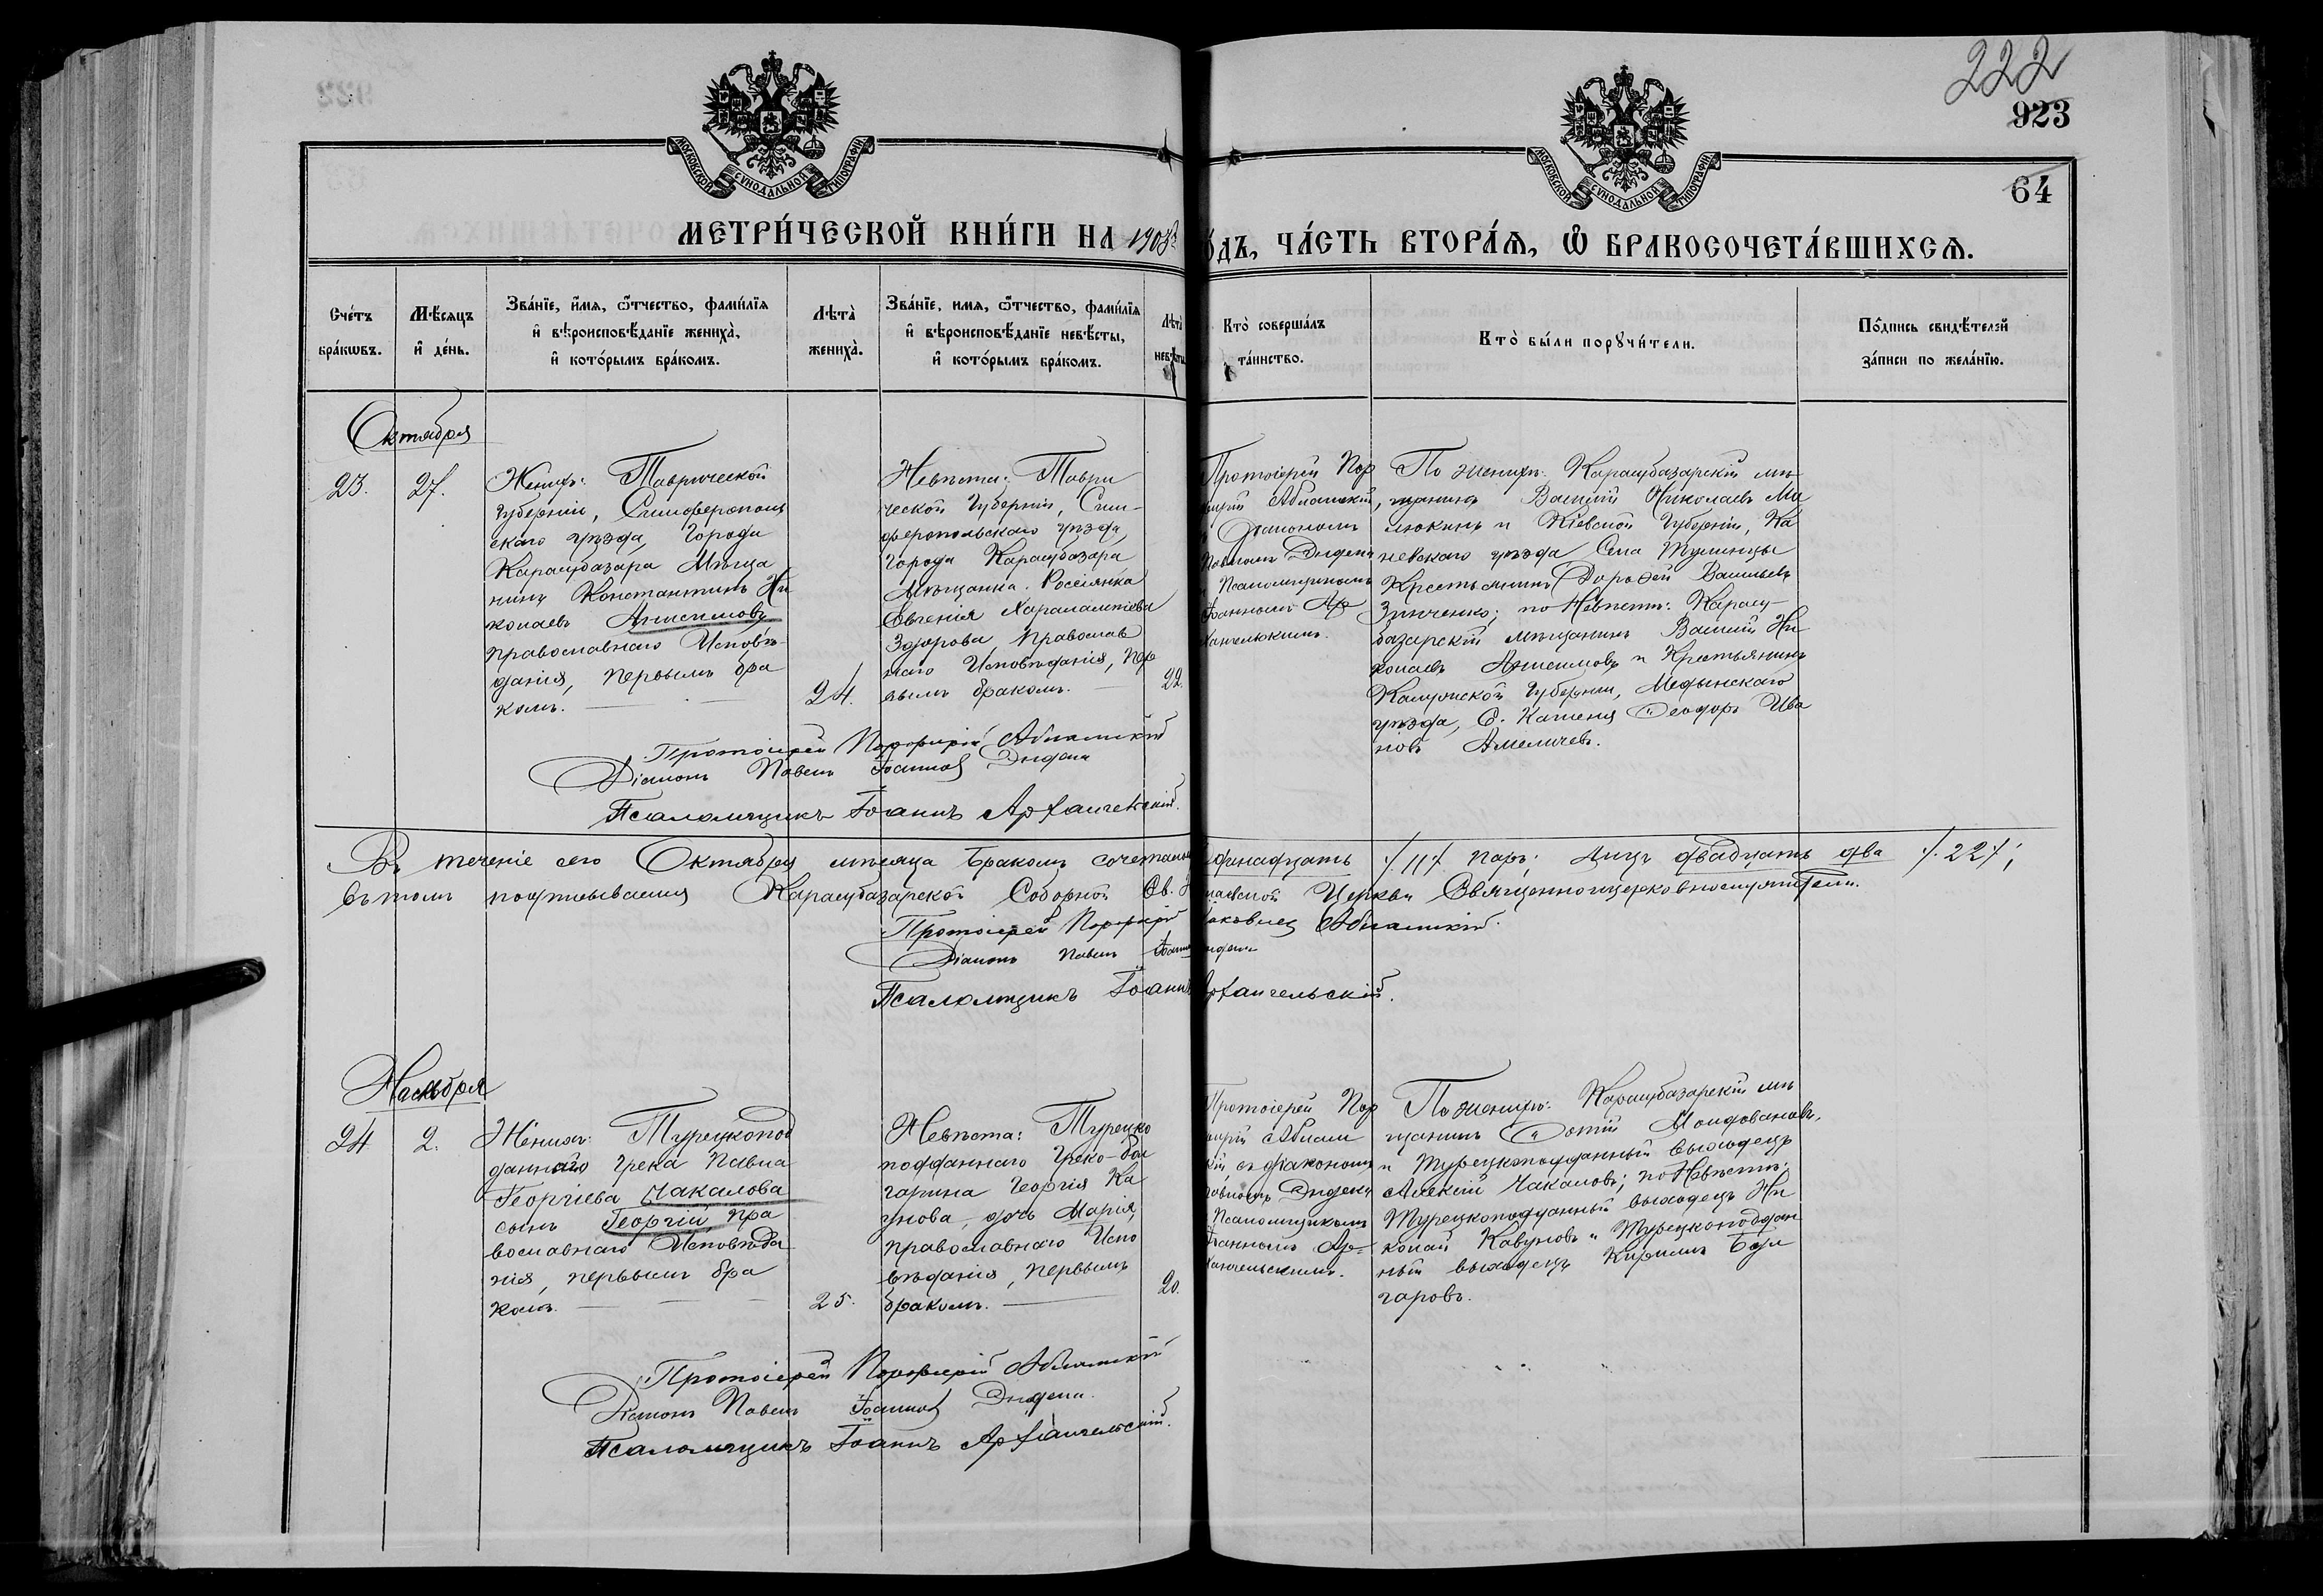 222
923
64
МОСКОВСКОЙ СѴНОДАЛЬНОЙ ТИПОГРАФІИ
МОСКОВСКОЙ СѴНОДАЛЬНОЙ ТИПОГРАФІИ
МЕТРИ́ЧЕСКОЙ КНИ́ГИ НА 1908
ГО́ДЪ, ЧА́СТЬ ВТОРА́Я, Ѽ БРАКОСОЧЕТА́ВШИХСЯ.
Сче́тъ бра́кѡвъ.
Мѣ́сяцъ и҆ де́нь.
Зва́нїе, и҆́мя, ѻ҆́тчество, фами́лїя
и҆ вѣроисповѣ́данїе жениха̀,
и҆ кото́рымъ бра́комъ.
Лѣта̀ жениха̀.
Зва́нїе, имя, ѻ҆́тчество, фами́лїя
и҆ вѣроисповѣ́данїе невѣ́сты,
и҆ кото́рымъ бра́комъ.
Лѣта̀ невѣ́сты
Кто̀ соверша́лъ
та́инство.
Кто̀ бы́ли порꙋчи́тели.
По́дпись свидѣ́телей
за́писи по жела́нїю.
Октября
23.
27.
Женихъ: Таврической
Губерніи, Симферополь
скаго уѣзда, Города
Карасубазара Мѣща
нинъ Константинъ Ни
колаевъ Анисимовъ
православнаго Исповѣ-
данія, первымъ бра
комъ.
24.
Невѣста: Таври
ческой Губерніи, Сим-
феропольскаго уѣзда,
города Карасубазара
Мѣщанка. Россіянка
Евгенія Харалампіева
Здорова, Православ
наго Исповѣданія, пер
вымъ бракомъ.
22.
Протоіерей Пор
фирій Абламскій,
съ Діакономъ
Павломъ Эндека
и Псаломщикомъ
Іоанномъ Ар-
хангельскимъ.
По женихѣ: Карасубазарскій мѣ
щанинъ Василій Николаевъ Ма
люкинъ и Кіевской Губерніи, Ка
невскаго уѣзда Села Тулинцы
Крестьянинъ Дорофей Васильевъ
Зинченко; по Невѣстѣ: Карасу-
базарскій мѣщанинъ Василій Ни
колаевъ Анисимовъ и Крестьянинъ
Калужской Губерніи, Медынскаго
уѣзда, С. Каменя Ѳеодоръ Ива
новъ Амеличевъ.
Протоіерей Порфирій Абламскій
Діаконъ Павелъ Іоанновъ Эндека
Псаломщикъ Іоаннъ Архангельскій.
Въ теченіе сего Октября мѣсяца Бракомъ сочеталось одинадцать /.11./ паръ; лицъ двадцать два /.22./;
въ томъ подписываемся Карасубазарской Соборной Св. Николаевской Церкви Священноцерковнослужители.
Протоіерей Порфирій Іаковлев Абламскій.
Діаконъ Павелъ Іоанновъ Эндека
Псаломщикъ Іоаннъ Архангельскій.
Ноября
24
2.
Женихъ: Турецкопод
даннаго грека Павла
Георгіева Чакалова
сынъ Георгій, пра
вославнаго Исповѣда
нія, первымъ бра
комъ.
25.
Невѣста: Турецко
подданнаго Греко-бол
гарина Георгія Ка
унова, дочь Марія,
православнаго Испо
вѣданія, первымъ
бракомъ.
20.
Протоіерей Пор
фирій Аблам
скій съ діакономъ
Павломъ Эндека
Псаломщикомъ
Іоанномъ Ар-
хангельскимъ.
По женихѣ: Карасубазарскій мѣ
щанинъ Ѳотій Молдовановъ,
и Турецкоподданный выходецъ
Алексій Чакаловъ; по Невѣстѣ:
Турецкоподданный выходецъ Ни
колай Кавуновъ и Турецкоподдан
ный выходецъ Кириллъ Бол
гаровъ.
Протоіерей Порфирій Абламскій
Діаконъ Павелъ Іоанновъ Эндека.
Псаломщикъ Іоаннъ Архангельскій.